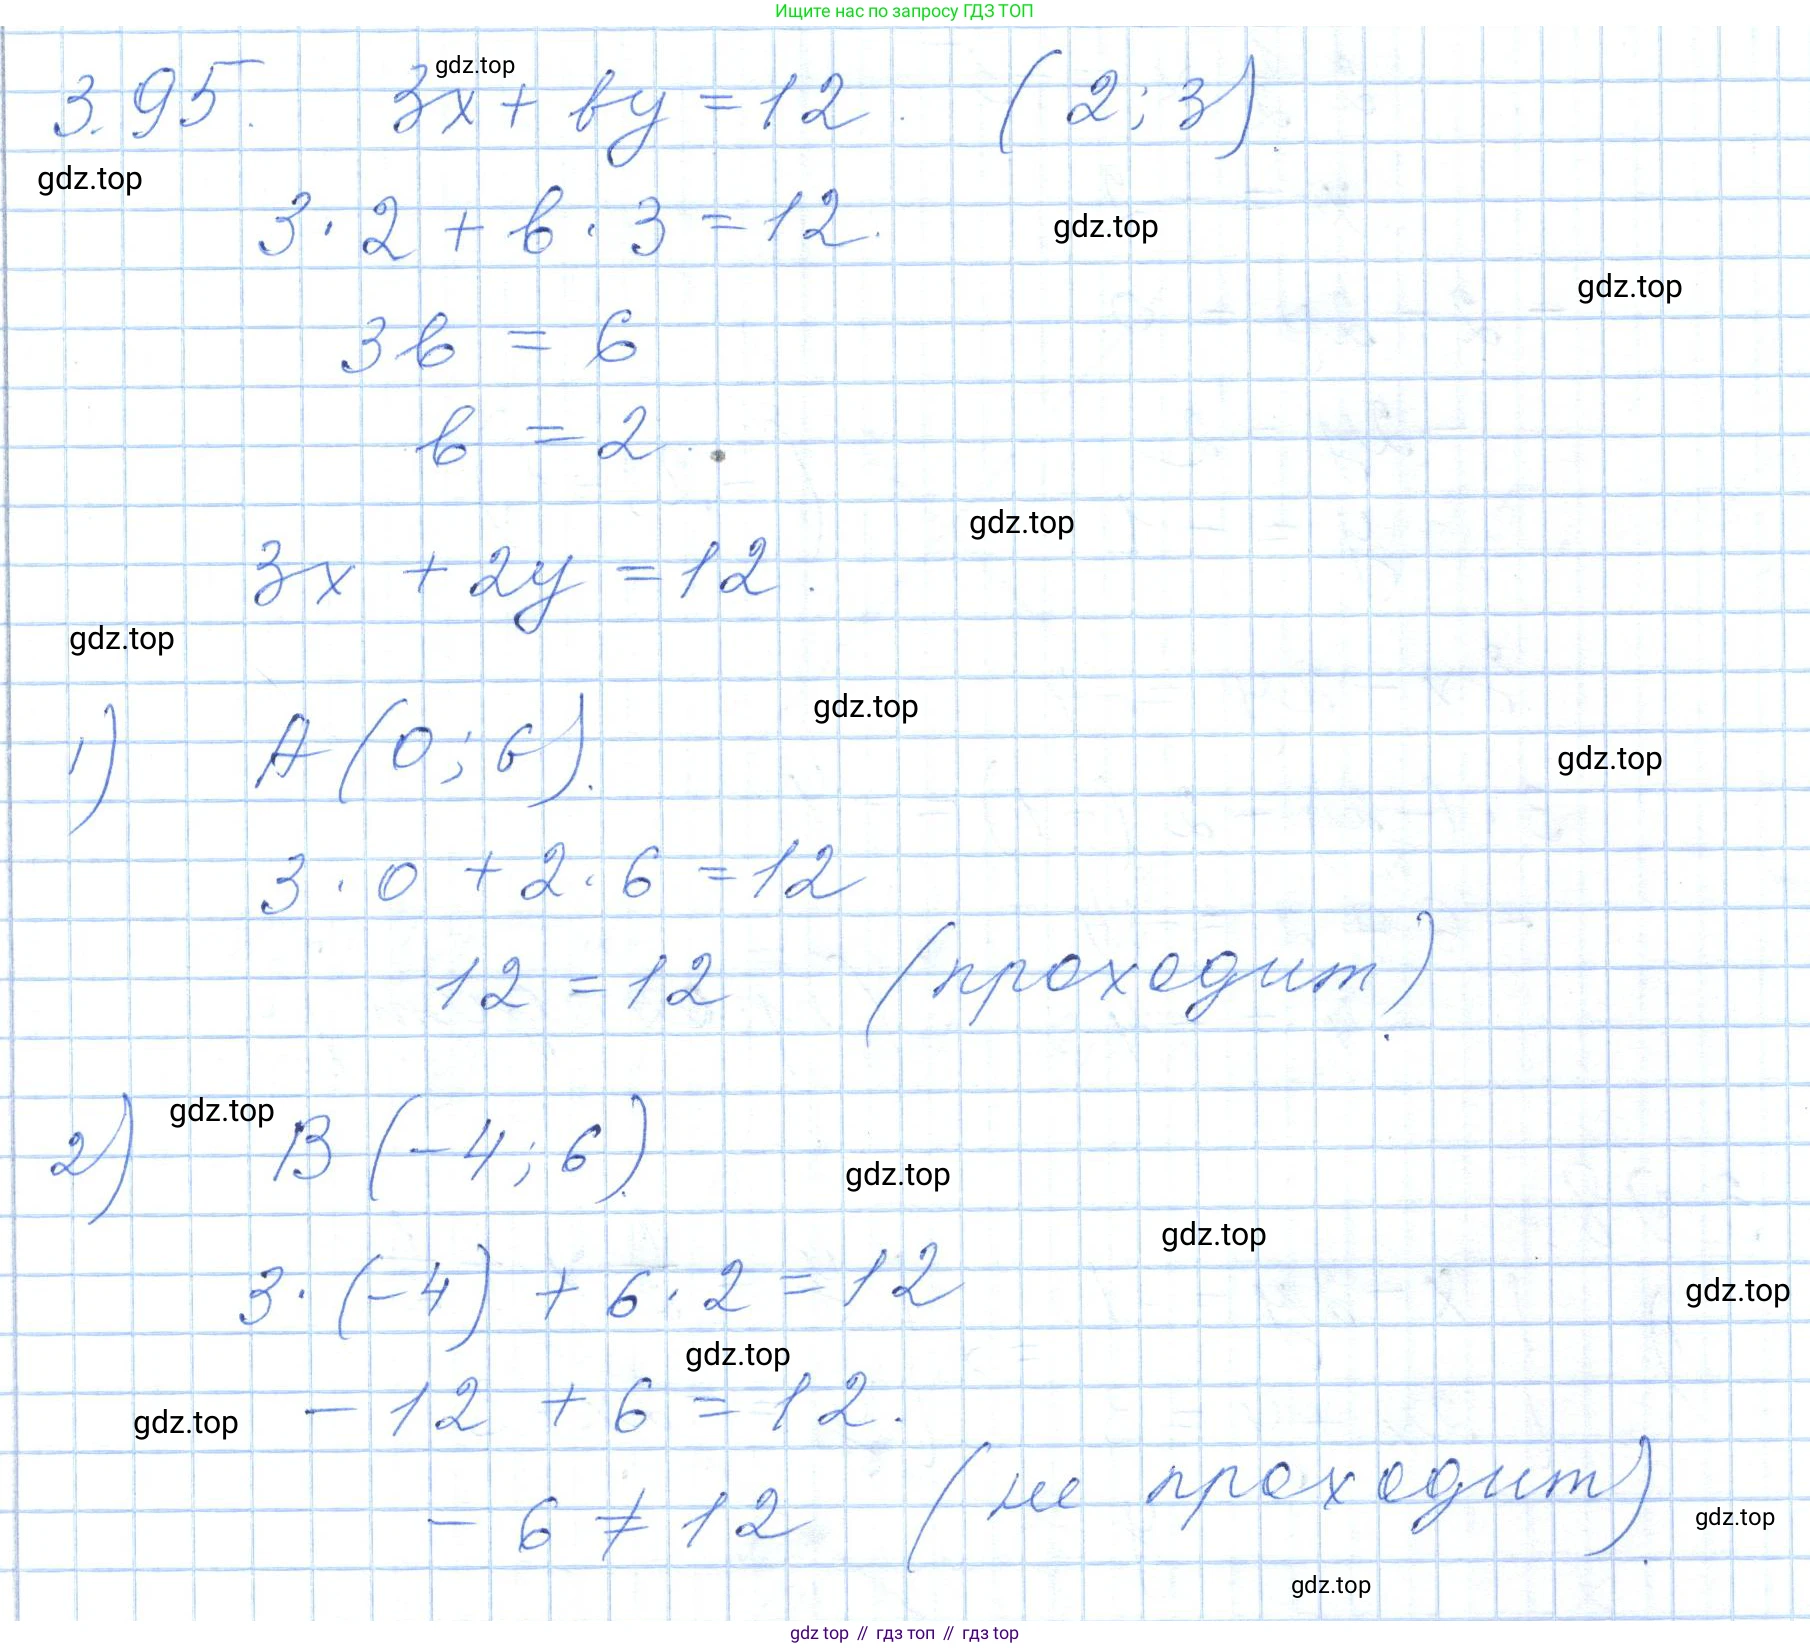 Ищите нас по запросу ГДЗ ТОП
gdz.top
3.95. 3x + by = 12. (2; 3).
gdz.top
3 · 2 + b · 3 = 12.
gdz.top
gdz.top
3b = 6
b = 2.
gdz.top
3x + 2y = 12.
gdz.top
gdz.top
1) A (0; 6).
gdz.top
3 · 0 + 2 · 6 = 12
12 = 12 (проходит).
gdz.top
2) B (-4; 6).
gdz.top
gdz.top
3 · (-4) + 6 · 2 = 12
gdz.top
gdz.top
- 12 + 6 = 12.
gdz.top
- 6 ≠ 12 (не проходит).
gdz.top
gdz.top
gdz.top // гдз топ // гдз top